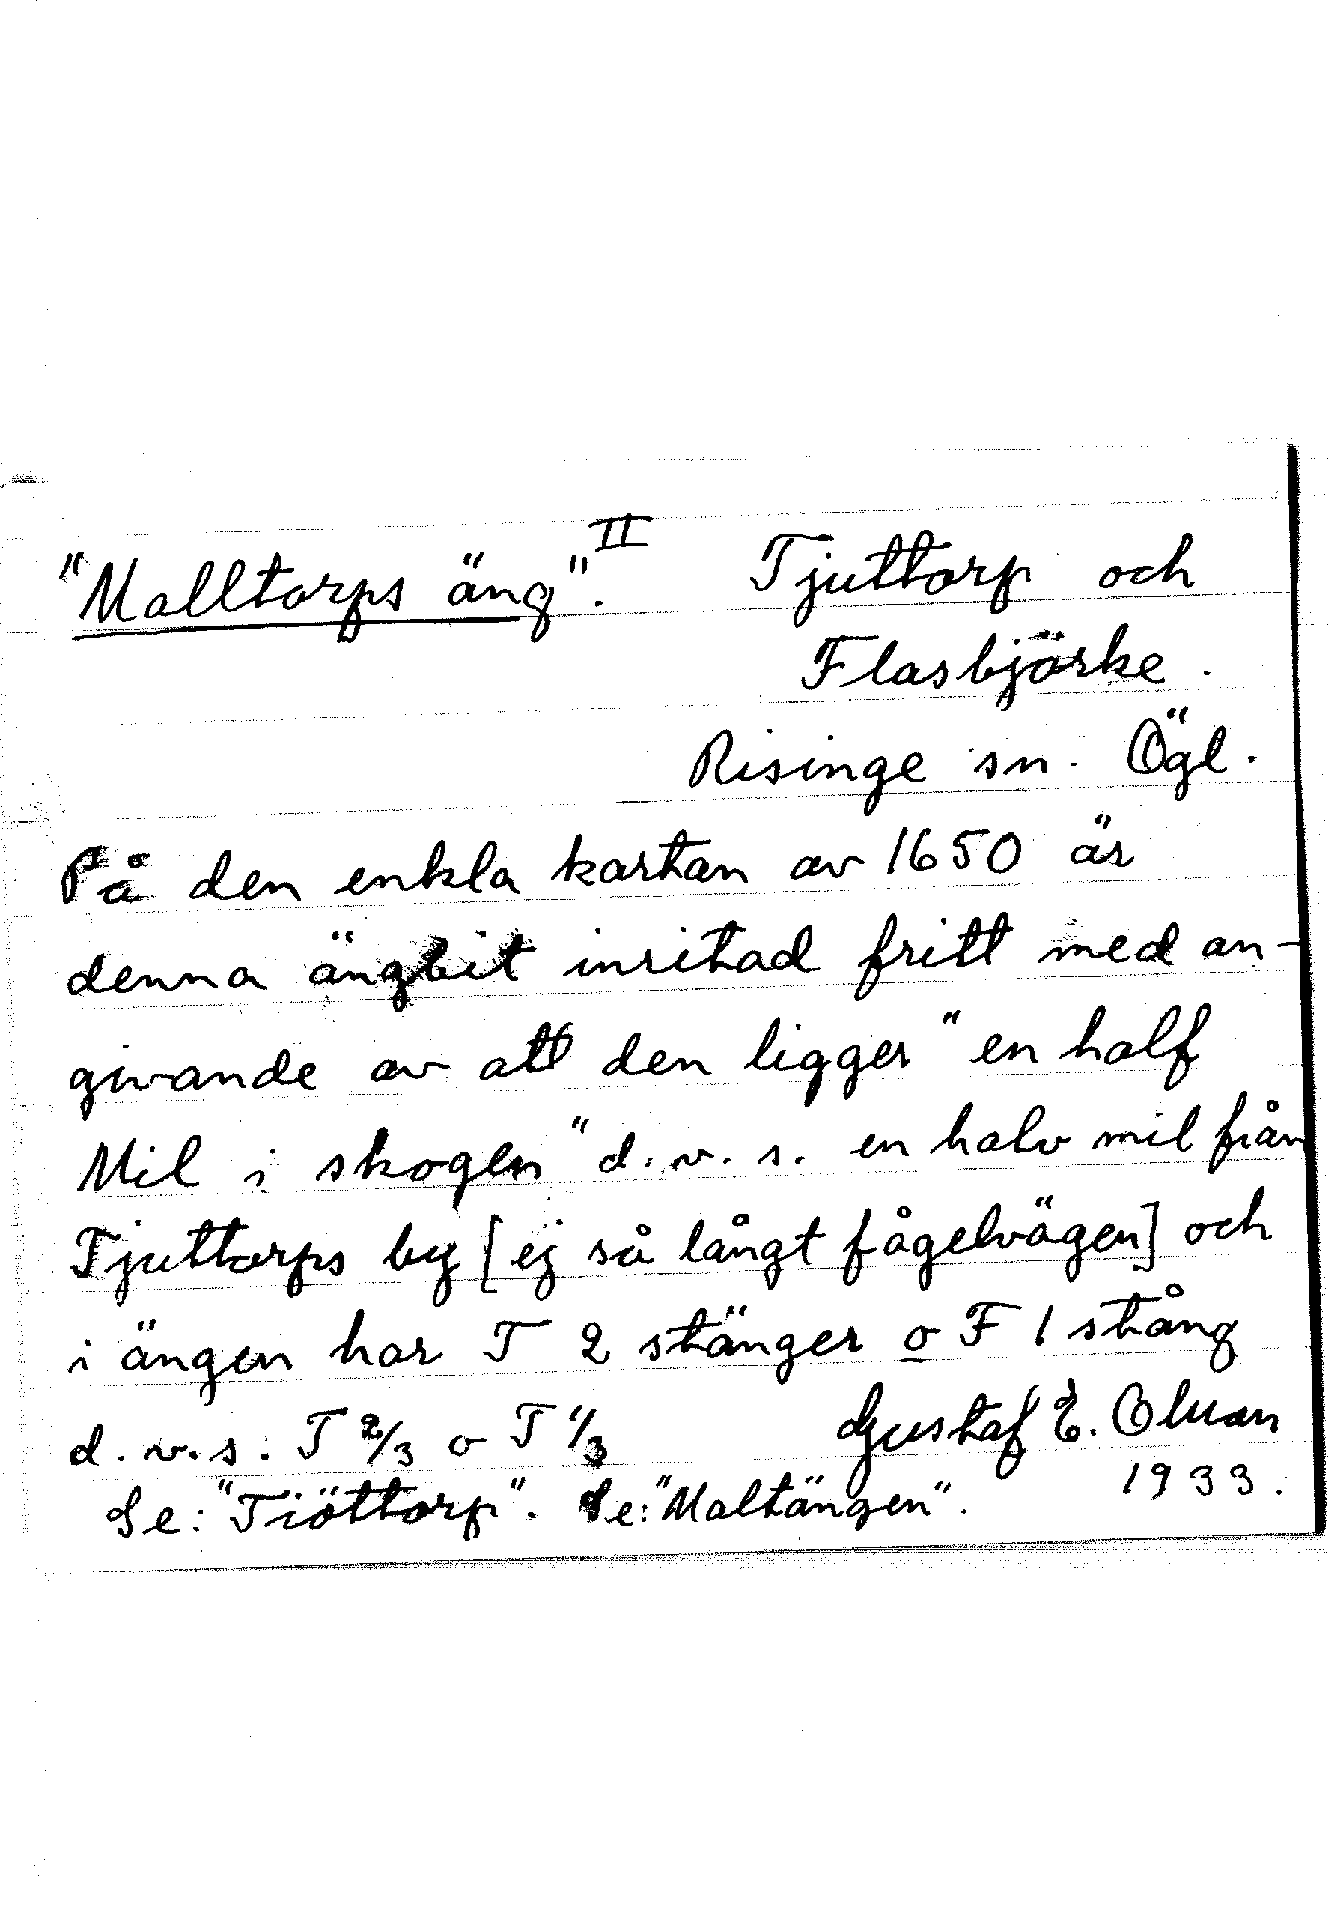 "Malltorps äng". II Tjuttorp och
Flasbjörke.
Risinge sn. Ögl.
På den enkla kartan av 1650 är
denna ängbit inritad fritt med an-
givande av att den ligger "en half
Mil i skogen" d.v.s. en halv mil från
Tjuttorps by [ej så långt fågelvägen] och
i ängen har T 2 stänger o F 1 stång
d.v.s. T 2/3 o T 1/3 Gustaf E.
1933.
Se: "Tiöttorp". Se: "Maltängen".